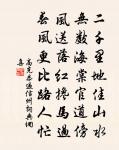 二千里地佳山水
無數海棠官道傍
風送落紅攙馬過
春風更比路人忙
高克恭過信州詩典網